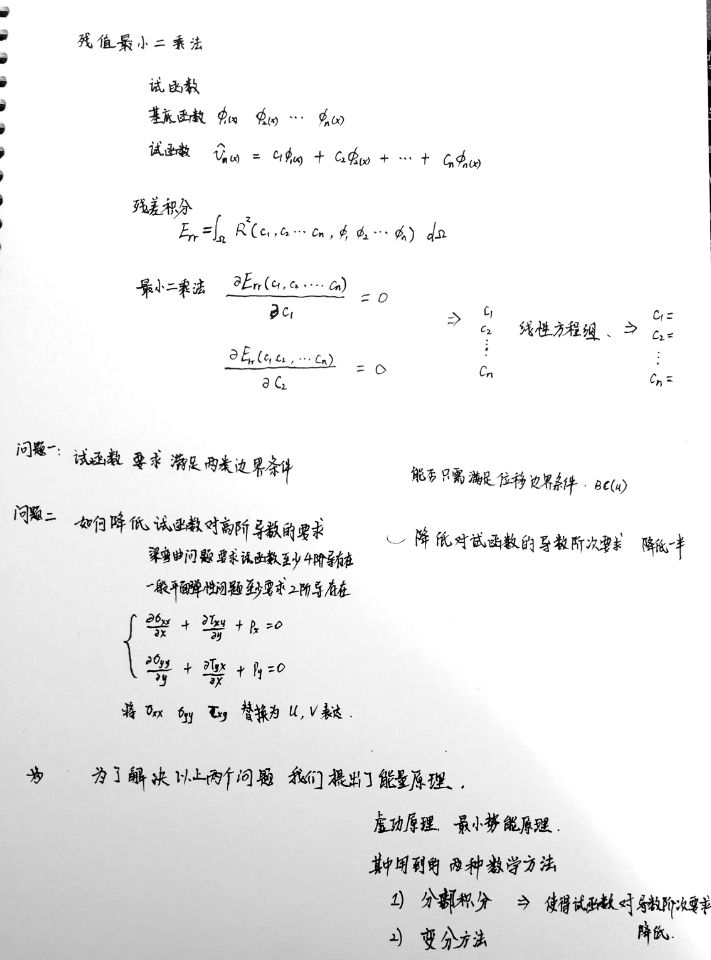 残值最小二乘法
试函数
基底函数 φ₁(x) φ₂(x) ⋯ φₙ(x)
试函数 v̂ₙ(x) = c₁φ₁(x) + c₂φ₂(x) + ⋯ + cₙφₙ(x)
残差积分
Err = ∫_Ω R²(c₁, c₂ ⋯ cₙ, φ₁ φ₂ ⋯ φₙ) dΩ
最小二乘法 ∂Err(c₁, c₂ ⋯ cₙ)/∂c₁ = 0
∂Err(c₁ c₂, ⋯ cₙ)/∂c₂ = 0
⇒ c₁ c₂ ⋮ cₙ 线性方程组、⇒ c₁= c₂= ⋮ cₙ=
问题一: 试函数 要求 满足两类边界条件 能否只需满足位移边界条件. BC(u)
问题二 如何降低试函数对高阶导数的要求 降低对试函数的导数阶次要求 降低一半
梁弯曲问题要求试函数至少4阶导存在
一般平面弹性问题至少要求2阶导存在
∂σxx/∂x + ∂τxy/∂y + Px = 0
∂σyy/∂y + ∂τyx/∂x + Py = 0
将 σxx σyy τxy 替换为 u, v 表达.
为了解决以上两个问题 我们提出了能量原理.
虚功原理. 最小势能原理.
其中用到的 两种数学方法
1) 分部积分 ⇒ 使得试函数对导数阶次要求
降低.
2) 变分方法